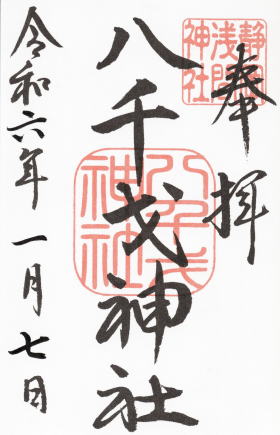 奉拝
静岡
浅間
神社
八千戈神社
八千戈
神社
令和六年一月七日